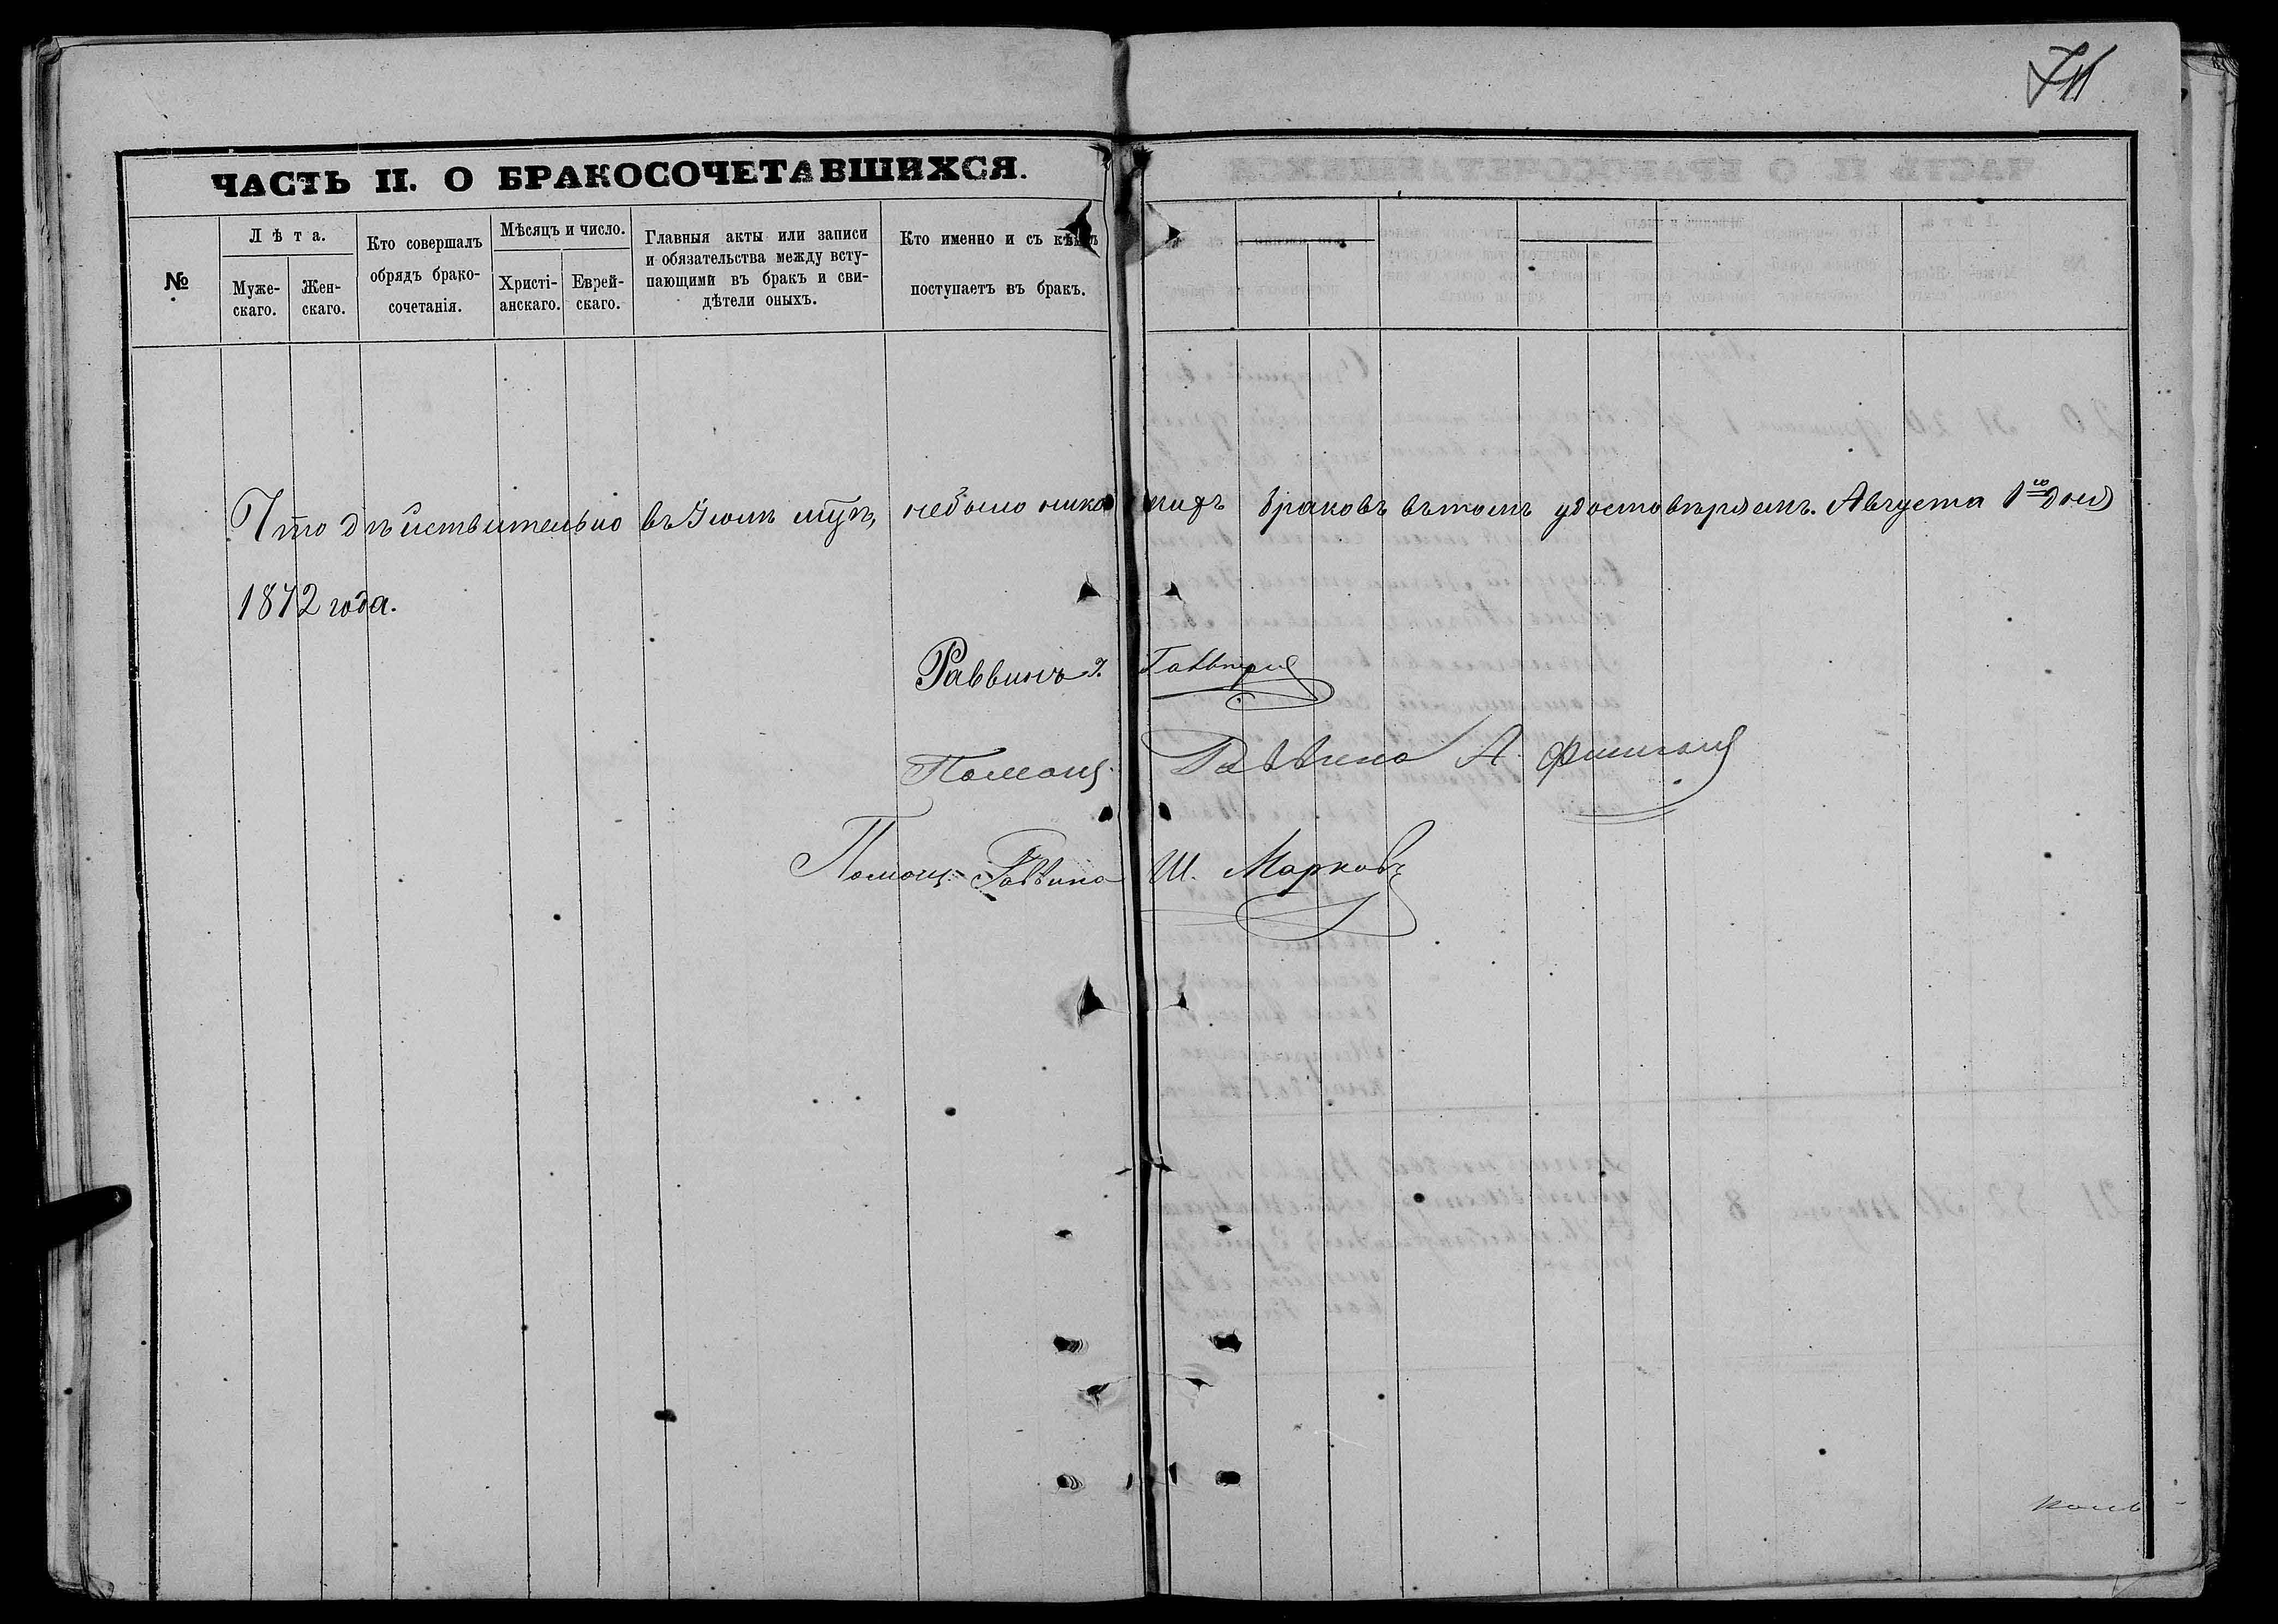 ЧАСТЬ II. О БРАКОСОЧЕТАВШИХСЯ.
№
Лѣта.
Муже-
скаго.
Жен-
скаго.
Кто совершалъ
обрядъ брако-
сочетанія.
Мѣсяцъ и число.
Христі-
анскаго.
Еврей-
скаго.
Главныя акты или записи
и обязательства между всту-
пающими въ бракъ и сви-
дѣтели оныхъ.
Кто именно и съ кѣмъ
поступаетъ въ бракъ.
Что дѣйствительно въ Іюлѣ небыло никакихъ браковъ вътомъ удостовѣряемъ. Августа 1го дня
1872 года.
Раввинъ
Помощ. Раввина А.
Помощ. Раввина Ш. Марковъ